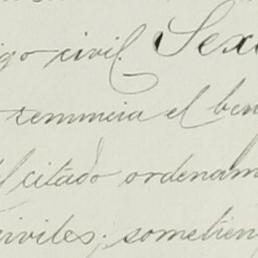 igo civil. Sex
renuncia el ben
el citado ordenam
civiles; sometien